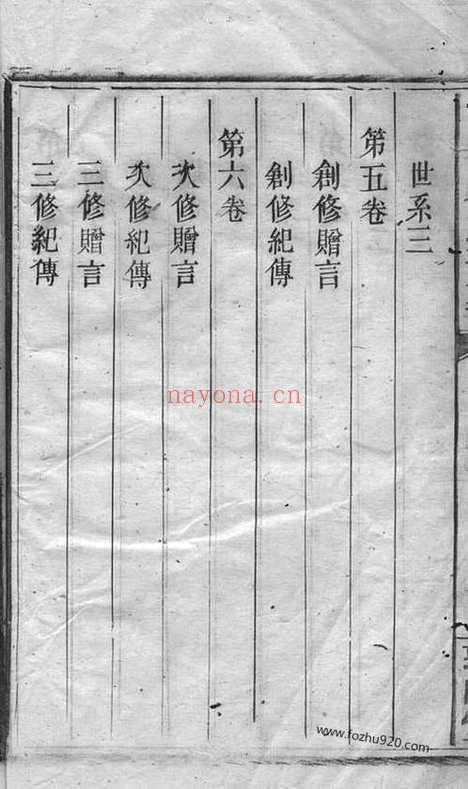 世系三
第五卷
創修贈言
創修紀傳
第六卷
次修贈言
次修紀傳
三修贈言
三修紀傳
nayona.cn
www.fozhu920.com